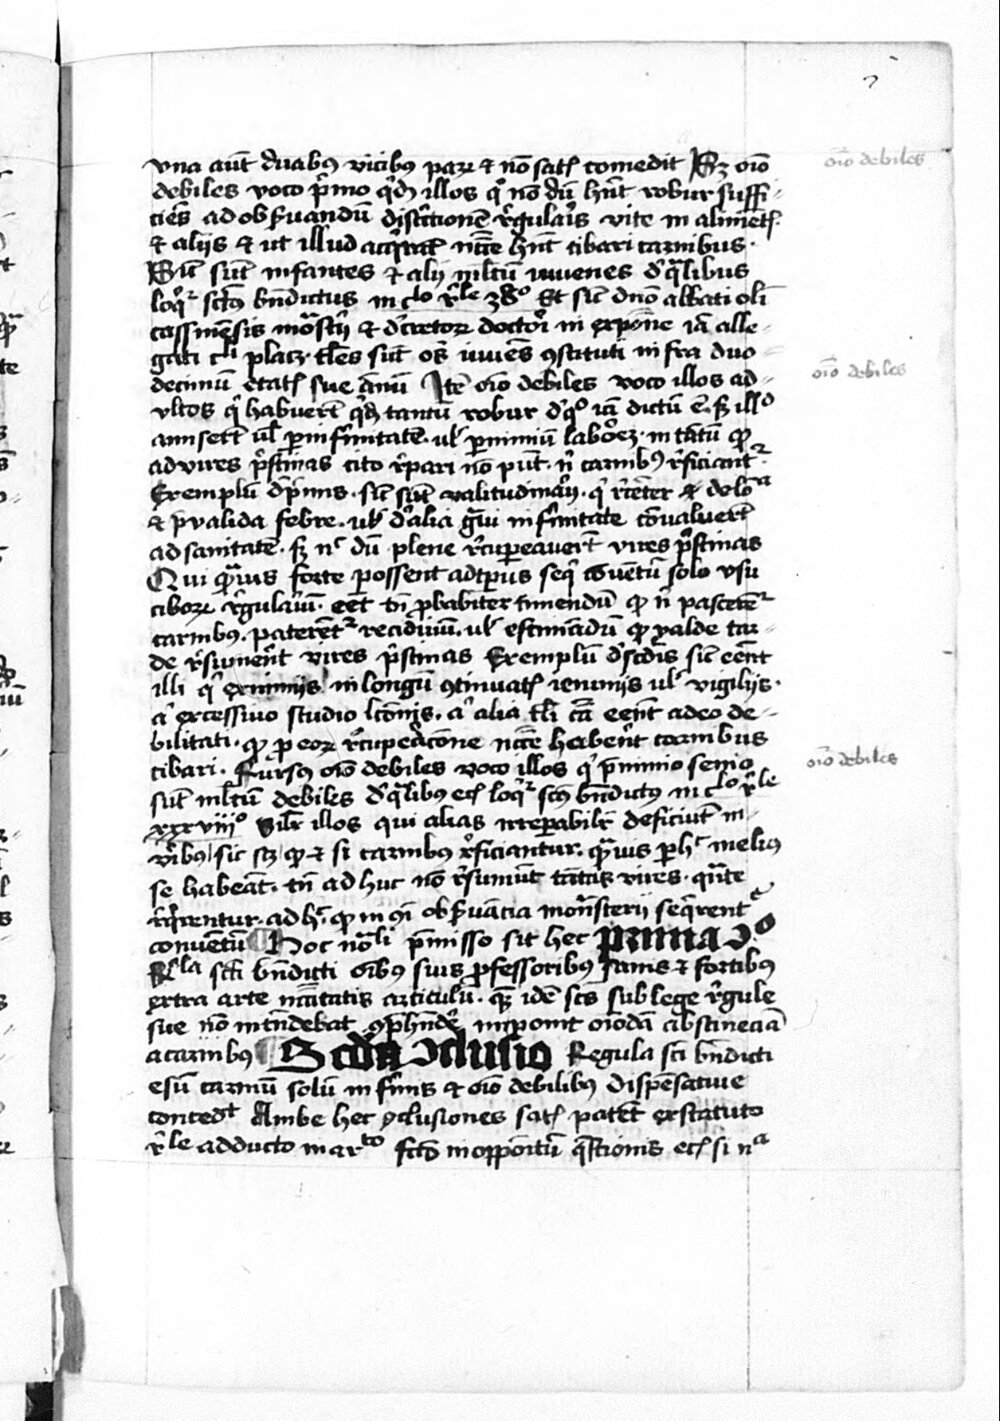 vna aūt duabꝰ vicibꝰ paꝝ ⁊ nō satꝭ comedit Sꝫ oīo
debiles voco p̄mo qͥdē illos qͥ nō dū hn̄t robur suffi-
ciēs ad obẜuandū discͥtionē rͤgularͥs vite in alimētꝭ
⁊ alijs ⁊ ut illud acqͥrāt nc̄ce hn̄t cibari carnibus.
Sic̄ sūt infantes ⁊ alij ml̄tū iuuenes dͤ qͣlibus
loqͥr sctūs bn̄dictus in cͣlo rͤle 3
cassinēsis mōstrij ⁊ dͤcretoꝝ doctorͥ in exposic̄ōne iā alle-
gati placꝫ tl̄es sūt oēs iuuēes ꝯstituti infra duo
decimū etatꝭ sue ānū Itē oīo debiles voco illos ad-
ultos qͥ habuerūt qͥdē tantū robur dͤ qͦ iā dictū ē. sꝫ illͦ
amiserūt ul̄ ꝑ infirmitatē. ul̄ ꝑ nimiū laborē. in tātū ꝙ
ad vires pͥstinas cito rͤpari nō pn̄t. nͥ carnibꝰ rͤficiant᷑.
Exemplū dͤ pͥmis. sic̄ sūt valitudinarͥj. qͥ rͤcēter
⁊ p̄valida febre. ul̄ dͤ alia gͣui infirmitate cōualuerūt
ad sanitatē. sꝫ nͨ dū plene rͤcuperauerūt vires pͥstinas
Qui qͣꝫuis forte possent ad tp̄us seqͥ ꝯuentū solo vsu
ciboꝝ rͤgulariū. eēt tn̄ ꝓbabiliter timendū ꝙ nͥ pascerēt᷑
carnibꝰ. paterēt᷑ recidiuū. ul̄ estimādū ꝙ valde tar-
de rͤsumerēt vires pͥstinas Exemplū dͤ scd̄is sic̄ eēnt
illi qͥ ex nimijs in longū ꝯtinuatꝭ ieiunijs ul̄ vigilijs.
aͨ excessiuo studio lc̄onis. aͨ alia tl̄i cā eēnt adeo de-
bilitati. ꝙ ꝓ eoꝝ rͤcuperac̄one nc̄ce haberēt carnibus
cibari. Rursꝰ oīo debiles voco illos qͥ p̄ nimio senio
sūt ml̄tū debiles dͤ qͣlibus ecꝭ loqͥr scūs bn̄dictꝰ in cͣlo rͤle
xxxviijͦ Sil̄r illos qui alias irreꝑabilͥr deficiūt in
virͥbꝰ sic scꝫ ꝙ ⁊ si carnibus rͤficiantur. qͣꝫuis ꝑ hͨ melius
se habeāt. tn̄ ad huc nō rͤsumūt tātas vires. qūte
rͤqͥrentur. ad hͨ ꝙ in oī obẜuātia monasterij seqͥrent᷑
conuētū ¶ Hoc nōali p̄misso sit hec prima ↄͦ
Rͤla scti bn̄dicti oībus suis ꝓfessoribus sanis ⁊ fortibus
extra arte nc̄citatis articulū. qͣꝫ idē scs̄ sub lege rͤgule
sue nō intēdebat ꝯp̄hendͤ inponit oīodā abstineciā
a carnibꝰ ¶ Scd̄a ↄclusio Regula scti bn̄dicti
esū carniū solū infirmis ⁊ oīo debilibus dispēsatiue
concedit Ambe hec ꝯclusiones satꝭ patēt ex statuto
rͤle adducto in arͭͦ scd̄o in opposituū qͣstionis ecꝭ si nͣ
oīo debiles
oīo debiles
oīo debiles